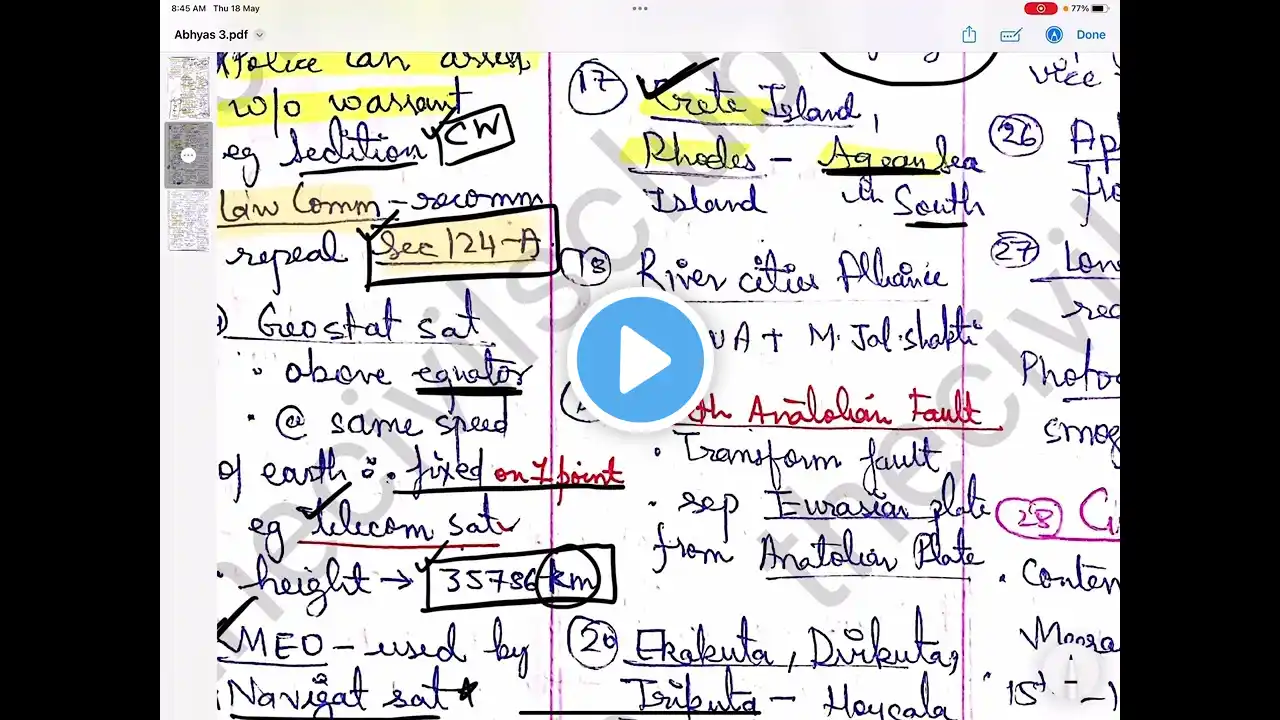 8:45 AM Thu 18 May
77%
Abhyas 3.pdf
Done
Police can arrest
w/o warrant
eg Sedition CW
Law Comm - recomm
repeal Sec 124-A
Geostat sat
• above equator
• @ same speed
of earth ∴ fixed on 1 point
eg telecom sat
• height → 35786 km
MEO - used by
Navigat sat
17 Crete Island,
Rhodes - Agean Sea
Island in South
18 River cities Alliance
UA + M. Jal.shakti
th Anatolian Fault
• Transform fault
• sep Eurasian plate
from Anatolian Plate
20 Ekakuta, Dvikuta,
Trikuta - Hoysala
vice
26 Ap
fro
27 Lon
rec
Photo
smog
28 C
• Conten
• 1St -
thecivilsclub
thecivil